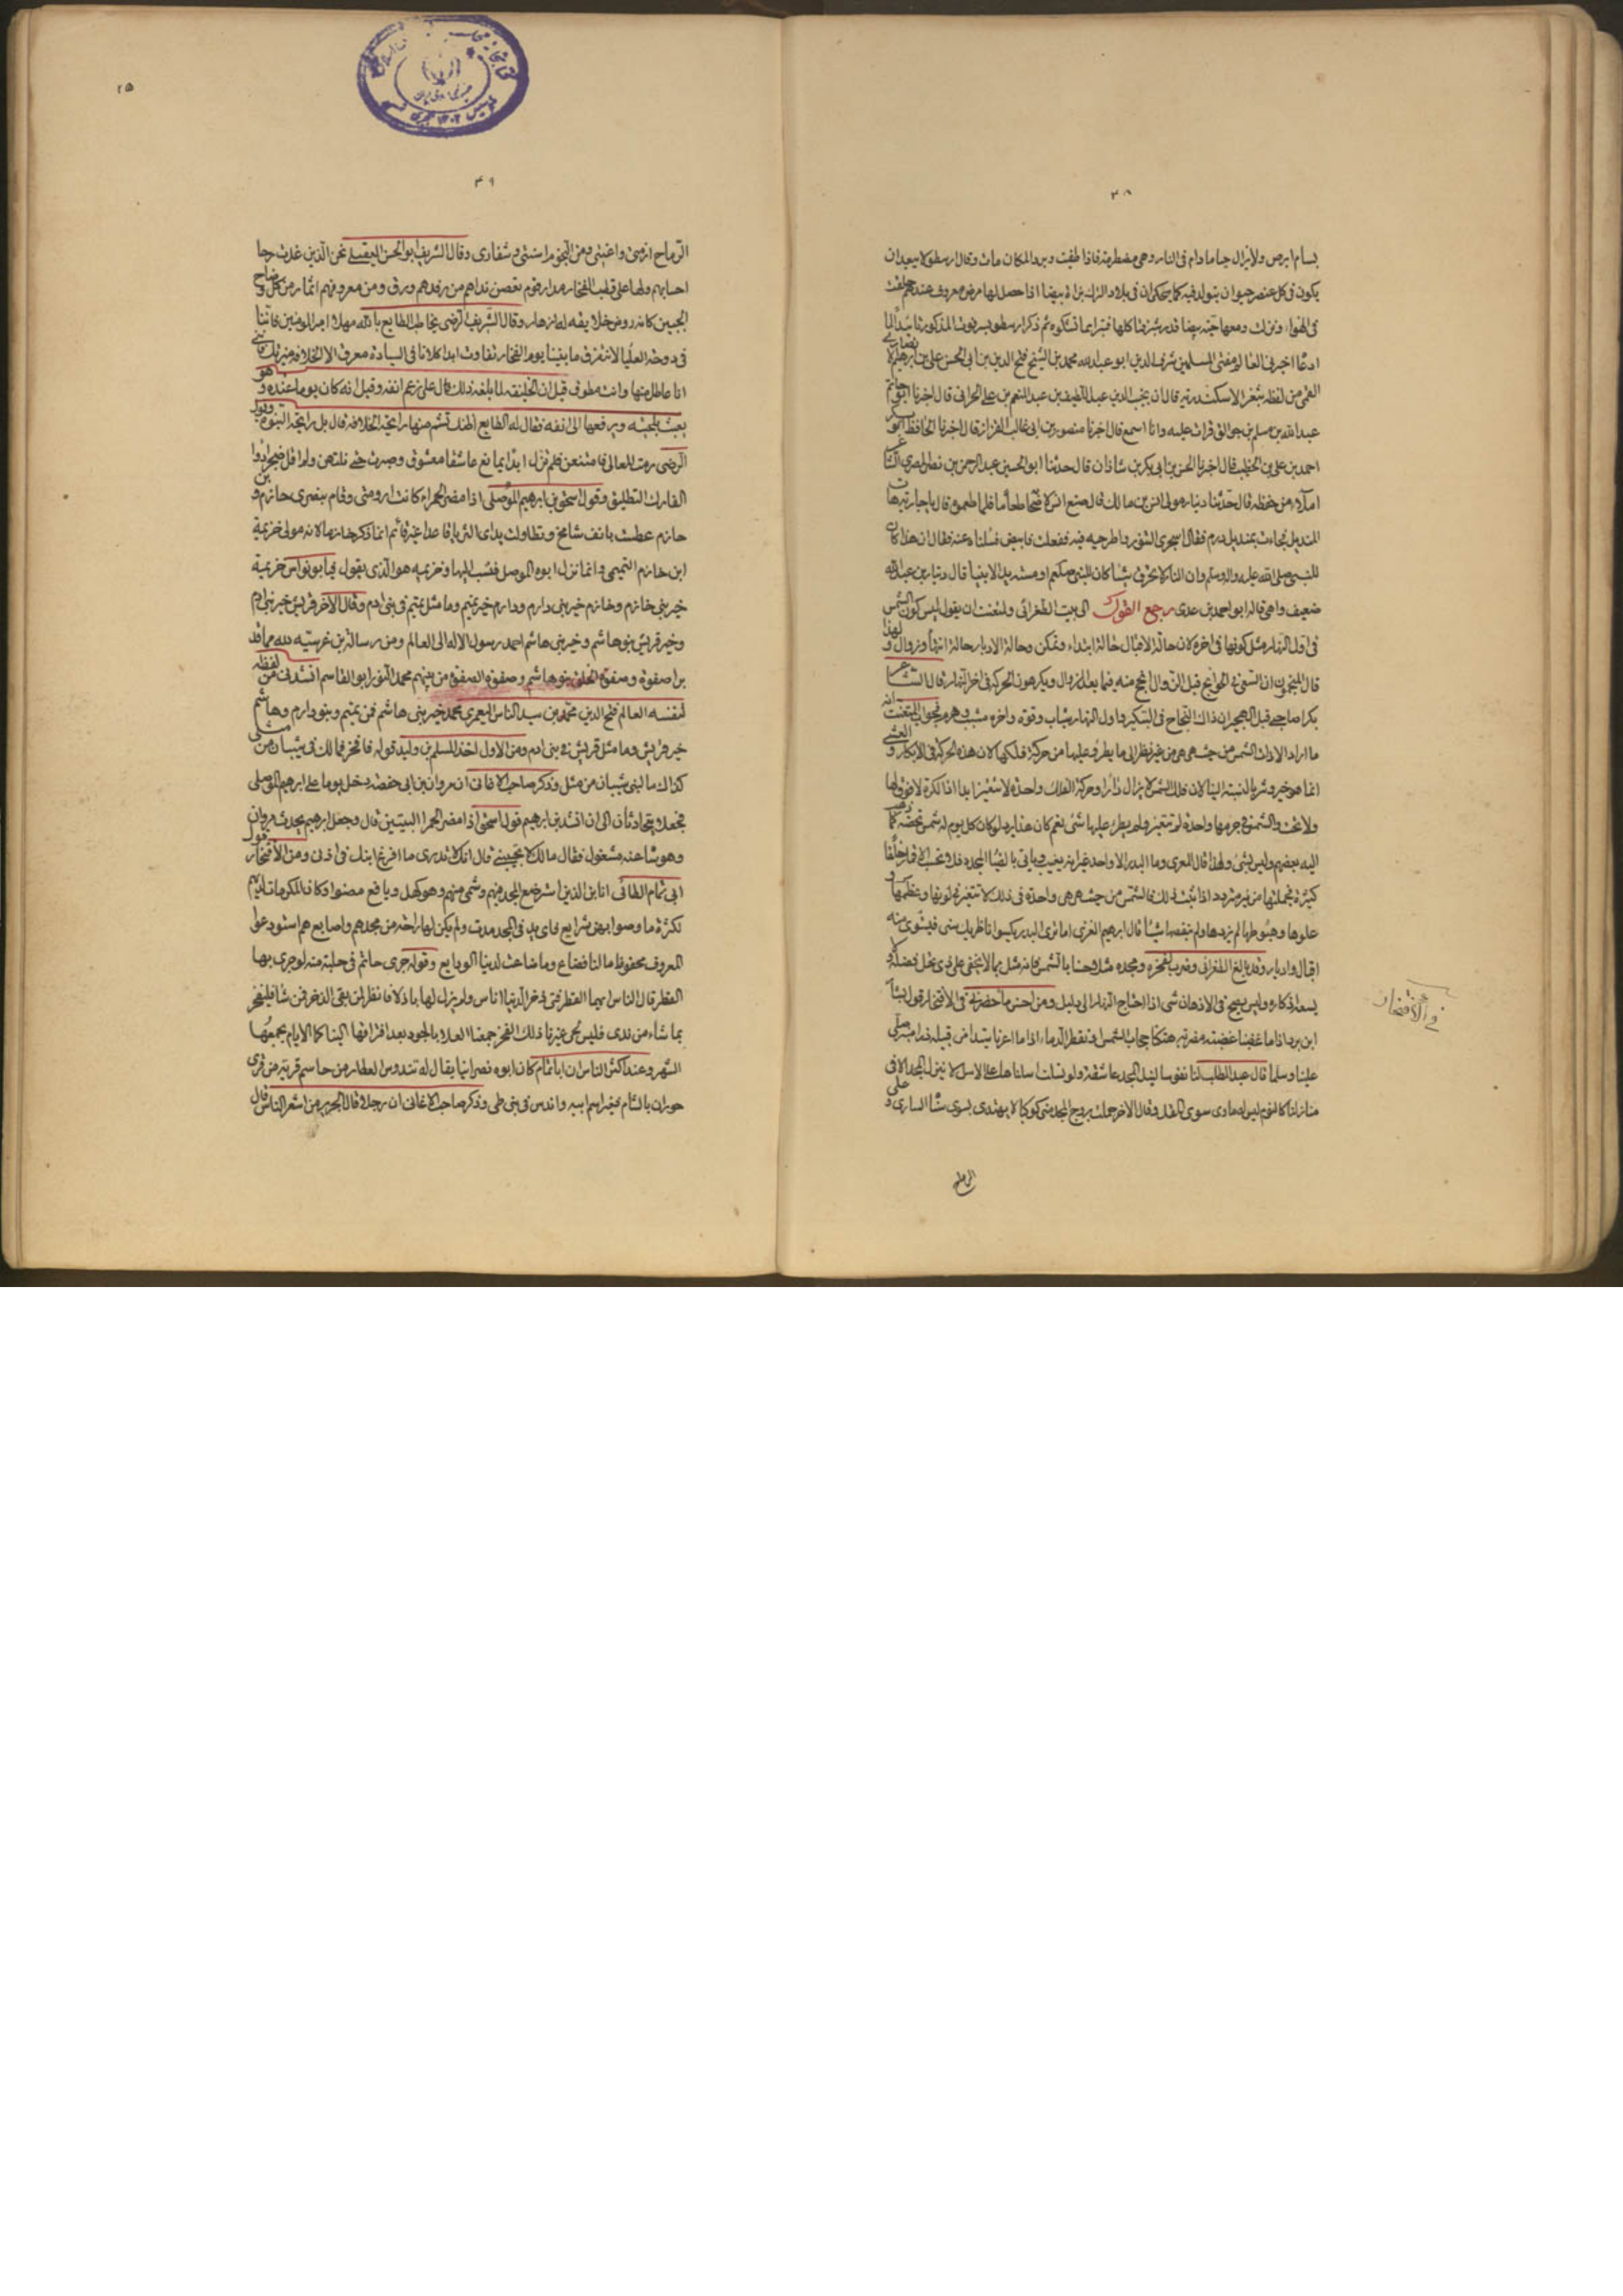 ٣٨
بسام ابرص ولا يزال حيا ما دام فى النار وهى مضطرمة فاذا طفيت وبرد المكان مات وقال ارسطو لا يبعد ان
يكون فى كل عنصر حيوان يتولد فيه كما يحكى ان فى بلاد الترك بيضا اذا حصل لها مرض معروف عندهم
فى الهواء ونزلت ومعها حية بيضا قدر شبر فياكلها فتبرا مما تشكوه ثم ذكر ارسطو
اخبرنى العالم مفتى المسلمين شرف الدين ابو عبد الله محمد بن الشيخ فتح الدين بن ابى الحسن على بن ابرهيم
القمى من لفظه بثغر الاسكندرية قال انا نجيب الدين عبد اللطيف بن عبد المنعم بن على الحرانى قال اخبرنا
عبد الله بن مسلم بن جوالق قرات عليه وانا اسمع قال اخبرنا منصور بن ابى غالب القزاز قال اخبرنا الحافظ ابو بكر
احمد بن على بن الخطيب قال اخبرنا الحسن بن ابى بكر بن شاذان قال حدثنا ابو الحسين عبد الرحمن بن نصر المصرى الشاعر
املاء من حفظه قال حدثنا دينار مولى انس بن مالك قال صنع انس لاصحابه طعاما فلما طعموا قال يا جارية هات
المنديل فجاءت بمنديل درن فقال اسجرى التنور واطرحيه فيه ففعلت فابيض فسالناه عنه فقال ان هذا كان
للنبى صلى الله عليه واله وسلم وان النار لا تحرق شيئا كان للنبى صلعم او مسته يد الانبيا قال دينار بن عبد الله
ضعيف واهى قاله ابو احمد بن عدى رجع القول الى بيت الطغرائى ولمتعنت ان يقول ليس كون الشمس
فى اول النهار مثل كونها فى اخره لان حالة الاقبال حالة ابتداء وتمكن وحالة الادبار حالة انتها وزوال ولهذا
قال المنجمون ان السعى فى الحوايج قبل الزوال انجح منه فيما بعد الزوال ويكرهون الحركة فى اخر النهار قال الشاعر
بكرا صاحبى قبل الهجير ان ذاك النجاح فى التبكير واول النهار شباب وقوة واخره مشيب وهرم فجواب المتعنت انه
ما اراد الا ذات الشمس من حيث هى هى من غير نظر الى ما يطرؤ عليها من حركة فلكها لان هذه الحركة فى الابكار والعشى
انما هو خير وشر بالنسبة الينا لان فلك الشمس لا يزال دائرا وحركة الفلك واحدة لا تتغير ابدا اذ الكرة لا فوق لها
ولا تحت والشمس فى جرمها واحدة لم تتغير ولم يطرء عليها شئ نعم كان هذا يرد لو كان كل يوم له شمس تخصه كما ذهب
اليه بعضهم وليس بشئ ولهذا قال المعرى وما البدر الا واحد غير انه يغيب وياتى بالضيا المجدد فلا تحسب الاقمار خلقا
كثيرة فجملتها من نير متردد اذا ثبت ذلك فالشمس من حيث هى هى واحدة فى ذلك لا تتغير نعم نورها وعظمها و
علوها وهبوطها لم يزدها ولم ينقصها شيئا قال ابرهيم الغزى اما ترى البدر يكبو اناظريك سنى فيستوى منه
اقبال وادبار وقد بالغ الطغرائى وضرب لفخره ومجده مثلا وحسنا بالشمس فانه مثل بما لا يخفى على ذى عقل فضله ولا
يسعه انكاره وليس يصح فى الاذهان شئ اذا احتاج النهار الى دليل ومن احسن ما احضرته فى الافتخار قول بشار
ابن برد اذا ما غضبنا غضبة مضرية هتكنا حجاب الشمس او تقطر الدماء اذا ما اعرنا سيدا من قبيلة ذرا منبر صلى
علينا وسلما قال عبد المطلب لنا نفوس لنيل المجد عاشقة ولو تسلت اسلناها على الاسل لا ينزل المجد الا فى
منازلنا كالنوم ليس له ماوى سوى المقل وقال الاخر حللت بروج المجد حتى كوكبا لا يهتدى بسوى سنا السارى وحلى
الرماح
فى الافتخار
٢٥
٣٩
الرماح ازمتى واعنتى ومن النجوم اسنتى وشفارى وقال الشريف ابو الحسن العقيلى نحن الذين غدت رحا
احسابهم ولها على قطب الفخار مدار قوم لغصن نداهم من رفدهم ورق ومن معروفهم اثمار من كل وضاح
الجبين كانه روض خلايقه له ازهار وقال الشريف الرضى يخاطب الطايع بالله مهلا امير المومنين فاننا
فى دوحة العليا لا نتفرق ما بيننا يوم الفخار تفاوت ابدا كلانا فى السيادة معرق الا الخلافة ميزتك فاننى
انا عاطل منها وانت مطوق قيل ان الخليفة لما بلغه ذلك قال على رغم انفه وقيل انه كان يوما عنده وهو
يعبث بلحيته ويرفعها الى انفه فقال له الطايع اظنك تشم منها رايحة الخلافة قال بل رايحة النبوة وقول
الرضى رمت المعالى فامتنعن فلم تزل ابدا يمانع عاشقا معشوق وصبرت حتى نلتهن ولم اقل ضجرا دوا
الفارك التطليق وقول اسحق بن ابرهيم الموصلى اذا مضر الحمراء كانت ارومتى وقام بنصرى خازم وابن
خازم عطست بانف شامخ وتناولت يداى الثريا قاعدا غير قائم انما ذكر خازما لانه مولى خزيمة
ابن خازم التميمى وانما نزل ابوه الموصل فنسب اليها وخزيمه هو الذى يقول فيه ابو نواس خزيمة
خير بنى خازم وخازم خير بنى دارم ودارم خير تميم وما مثل تميم فى بنى ادم وقال الاخر قريش خير بنى ادم
وخير قريش بنو هاشم وخير بنى هاشم احمد رسول الاله الى العالم ومن رسالة بن غرسيه لله مما قد
برا صفوة وصفوة الخلق بنو هاشم وصفوة الصفوة من بينهم محمد النور ابو القاسم انشدنى من لفظه
لنفسه العالم فتح الدين محمد بن سيد الناس اليعمرى محمد خير بنى هاشم فمن تميم وبنو دارم وهاشم
خير قريش وما مثل قريش فى بنى ادم ومن الاول اخذ المسلم بن وليد قوله فافخر فمالك فى شيبان من مثل
كذاك ما لبنى شيبان من مثل وذكر صاحب الاغانى ان مروان بن ابى حفصه دخل يوما على ابرهيم الموصلى
فجعلا يتحادثان الى ان انشد ابن ابرهيم قول اسحق اذا مضر الحمرا البيتين قال وجعل ابرهيم يحدث مروان
وهو ساه عنه مشغول فقال مالك لا تجيبنى قال انك لا تدرى ما افرغ ابنك فى اذنى ومن الافتخار قول
ابى تمام الطائى انا ابن الذين استرضع المجد فيهم وسمى منهم وهو كهل ويافع مضوا وكان المكرمات لديهم
لكثرة ما وصوا بهن شرايع فاى يد فى المجد مدت ولم يكن لها راحة من مجدهم واصابع هم استودعوا
المعروف محفوظ مالنا فضاع وما ضاعت لدينا الودايع وقوله جرى حاتم فى حلبة منه لو جرى بها
القطر قال الناس ايهما القطر فتى ذخر الدنيا اناس ولم يزل لها باذلا فانظر لمن بقى الذخر فمن شا فليفخر
بما شاء من ندى فليس لحى غيرنا ذلك الفخر جمعنا العلا بالجود بعد افتراقها الينا كما الايام يجمعها
الشهر وعند اكثر الناس ان ابا تمام كان ابوه نصرانيا يقال له تندوس العطار من جاسم قرية من قرى
حوران بالشام فغير اسم ابيه واندس فى بنى طى وذكر صاحب الاغانى ان رجلا قال لجرير من اشعر الناس قال